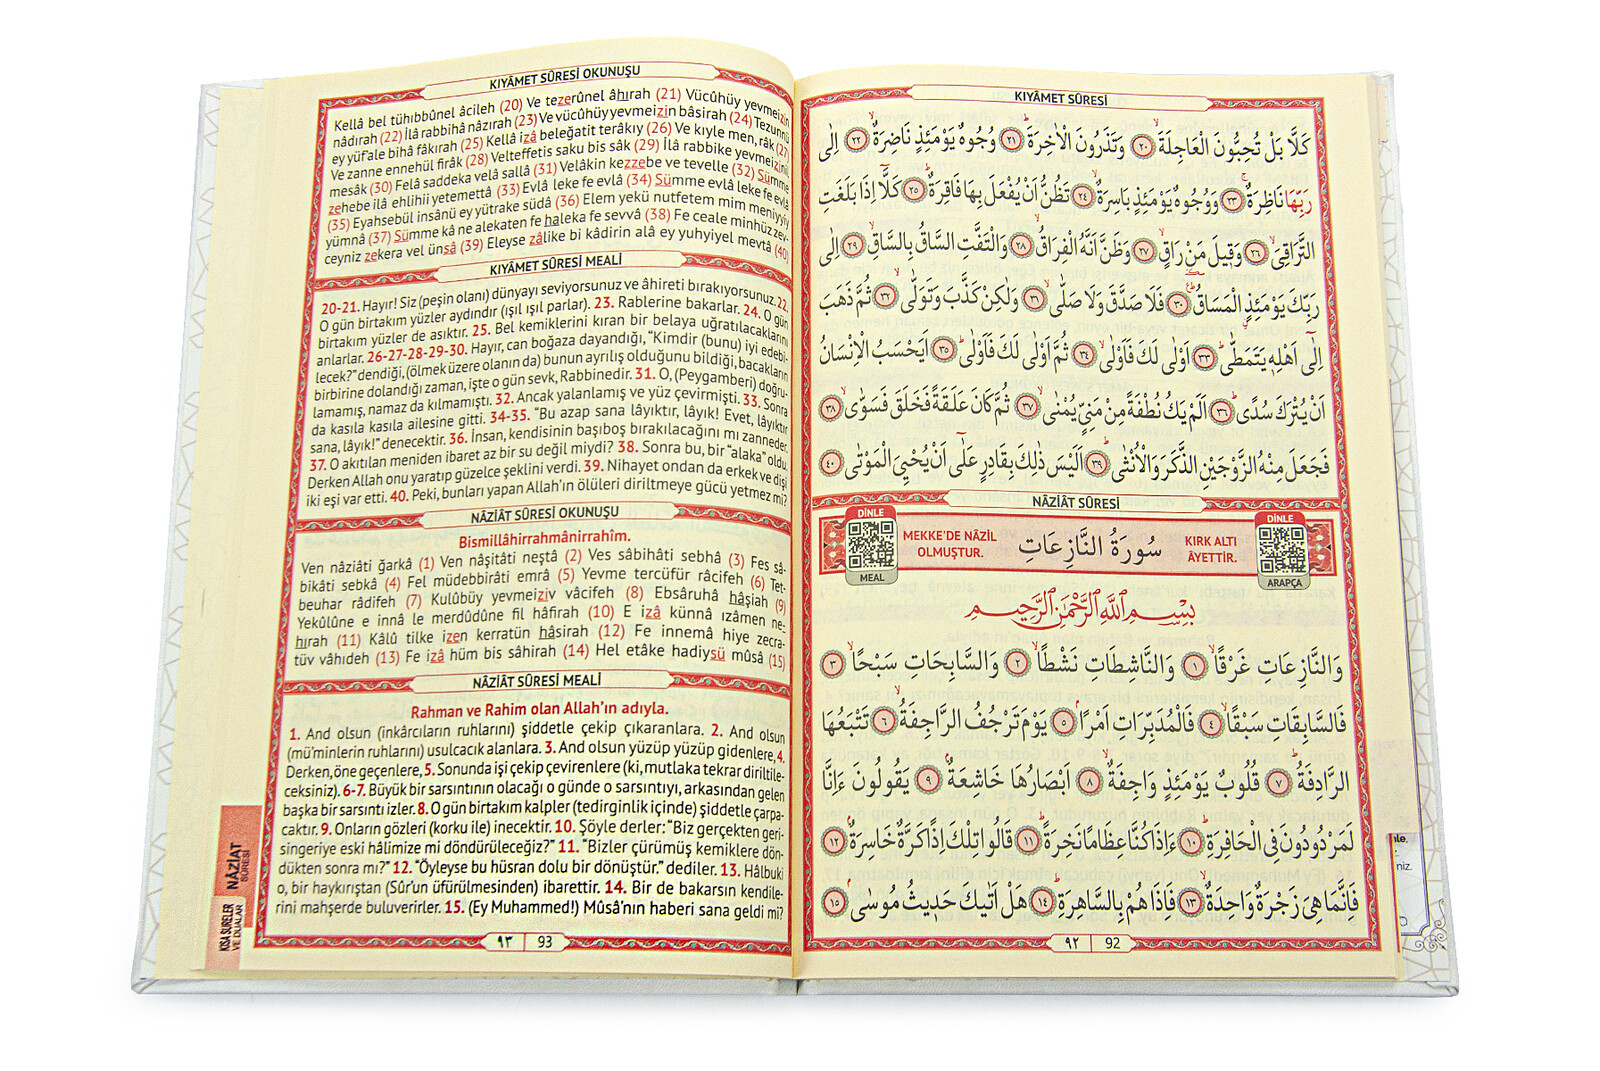 KIYÂMET SÛRESİ
كَلَّا بَلْ تُحِبُّونَ الْعَاجِلَةَۙ ﴿٢٠﴾ وَتَذَرُونَ الْاٰخِرَةَۜ ﴿٢١﴾ وُجُوهٌ يَوْمَئِذٍ نَاضِرَةٌۙ ﴿٢٢﴾ اِلٰى
رَبِّهَا نَاظِرَةٌۚ ﴿٢٣﴾ وَوُجُوهٌ يَوْمَئِذٍ بَاسِرَةٌۙ ﴿٢٤﴾ تَظُنُّ اَنْ يُفْعَلَ بِهَا فَاقِرَةٌۜ ﴿٢٥﴾ كَلَّٓا اِذَا بَلَغَتِ
التَّرَاقِيَۙ ﴿٢٦﴾ وَقِيلَ مَنْ رَاقٍۙ ﴿٢٧﴾ وَظَنَّ اَنَّهُ الْفِرَاقُۙ ﴿٢٨﴾ وَالْتَفَّتِ السَّاقُ بِالسَّاقِۙ ﴿٢٩﴾ اِلٰى
رَبِّكَ يَوْمَئِذٍ الْمَسَاقُۜ ﴿٣٠﴾ فَلَا صَدَّقَ وَلَا صَلّٰىۙ ﴿٣١﴾ وَلٰكِنْ كَذَّبَ وَتَوَلّٰىۙ ﴿٣٢﴾ ثُمَّ ذَهَبَ
اِلٰٓى اَهْلِهٖ يَتَمَطّٰىۜ ﴿٣٣﴾ اَوْلٰى لَكَ فَاَوْلٰىۙ ﴿٣٤﴾ ثُمَّ اَوْلٰى لَكَ فَاَوْلٰىۜ ﴿٣٥﴾ اَيَحْسَبُ الْاِنْسَانُ
اَنْ يُتْرَكَ سُدًىۜ ﴿٣٦﴾ اَلَمْ يَكُ نُطْفَةً مِنْ مَنِيٍّ يُمْنٰىۙ ﴿٣٧﴾ ثُمَّ كَانَ عَلَقَةً فَخَلَقَ فَسَوّٰىۙ ﴿٣٨﴾
فَجَعَلَ مِنْهُ الزَّوْجَيْنِ الذَّكَرَ وَالْاُنْثٰىۜ ﴿٣٩﴾ اَلَيْسَ ذٰلِكَ بِقَادِرٍ عَلٰٓى اَنْ يُحْيِيَ الْمَوْتٰى ﴿٤٠﴾
NÂZİÂT SÛRESİ
DİNLE
MEAL
MEKKE'DE NÂZİL
OLMUŞTUR.
سُورَةُ النَّازِعَاتِ
KIRK ALTI
ÂYETTİR.
DİNLE
ARAPÇA
بِسْمِ اللّٰهِ الرَّحْمٰنِ الرَّحِيمِ
وَالنَّازِعَاتِ غَرْقًاۙ ﴿١﴾ وَالنَّاشِطَاتِ نَشْطًاۙ ﴿٢﴾ وَالسَّابِحَاتِ سَبْحًاۙ ﴿٣﴾
فَالسَّابِقَاتِ سَبْقًاۙ ﴿٤﴾ فَالْمُدَبِّرَاتِ اَمْرًاۢ ﴿٥﴾ يَوْمَ تَرْجُفُ الرَّاجِفَةُۙ ﴿٦﴾ تَتْبَعُهَا
الرَّادِفَةُۜ ﴿٧﴾ قُلُوبٌ يَوْمَئِذٍ وَاجِفَةٌۙ ﴿٨﴾ اَبْصَارُهَا خَاشِعَةٌۢ ﴿٩﴾ يَقُولُونَ ءَاِنَّا
لَمَرْدُودُونَ فِي الْحَافِرَةِۜ ﴿١٠﴾ ءَاِذَا كُنَّا عِظَامًا نَخِرَةًۜ ﴿١١﴾ قَالُوا تِلْكَ اِذًا كَرَّةٌ خَاسِرَةٌۢ ﴿١٢﴾
فَاِنَّمَا هِيَ زَجْرَةٌ وَاحِدَةٌۙ ﴿١٣﴾ فَاِذَا هُمْ بِالسَّاهِرَةِۜ ﴿١٤﴾ هَلْ اَتٰيكَ حَدِيثُ مُوسٰىۢ ﴿١٥﴾
٩٢ 92
KIYÂMET SÛRESİ OKUNUŞU
Kellâ bel tühıbbûnel âcileh (20) Ve tezerûnel âhırah (21) Vücûhüy yevmeizin
nâdırah (22) İlâ rabbihâ nâzırah (23) Ve vücûhüy yevmeizin bâsirah (24) Tezunnü
ey yüf'ale bihâ fâkırah (25) Kellâ izâ beleğatit terâkıy (26) Ve kıyle men, râk (27)
Ve zanne ennehül firâk (28) Velteffetis saku bis sâk (29) İlâ rabbike yevmeizinil
mesâk (30) Felâ saddeka velâ sallâ (31) Velâkin kezzebe ve tevelle (32) Sümme
zehebe ilâ ehlihii yetemettâ (33) Evlâ leke fe evlâ (34) Sümme evlâ leke fe evlâ
(35) Eyahsebül insânü ey yütrake südâ (36) Elem yekü nutfetem mim meniyyiy
yümnâ (37) Sümme kâ ne alekaten fe haleka fe sevvâ (38) Fe ceale minhüz zev-
ceyniz zekera vel ünsâ (39) Eleyse zâlike bi kâdirin alâ ey yuhyiyel mevtâ (40)
KIYÂMET SÛRESİ MEALİ
20-21. Hayır! Siz (peşin olanı) dünyayı seviyorsunuz ve âhireti bırakıyorsunuz. 22.
O gün birtakım yüzler aydındır (ışıl ışıl parlar). 23. Rablerine bakarlar. 24. O gün
birtakım yüzler de asıktır. 25. Bel kemiklerini kıran bir belaya uğratılacaklarını
anlarlar. 26-27-28-29-30. Hayır, can boğaza dayandığı, "Kimdir (bunu) iyi edebi-
lecek?" dendiği, (ölmek üzere olanın da) bunun ayrılış olduğunu bildiği, bacakların
birbirine dolandığı zaman, işte o gün sevk, Rabbinedir. 31. O, (Peygamberi) doğru-
lamamış, namaz da kılmamıştı. 32. Ancak yalanlamış ve yüz çevirmişti. 33. Sonra
da kasıla kasıla ailesine gitti. 34-35. "Bu azap sana lâyıktır, lâyık! Evet, lâyıktır
sana, lâyık!" denecektir. 36. İnsan, kendisinin başıboş bırakılacağını mı zanneder.
37. O akıtılan meniden ibaret az bir su değil miydi? 38. Sonra bu, bir "alaka" oldu.
Derken Allah onu yaratıp güzelce şeklini verdi. 39. Nihayet ondan da erkek ve dişi
iki eşi var etti. 40. Peki, bunları yapan Allah'ın ölüleri diriltmeye gücü yetmez mi?
NÂZİÂT SÛRESİ OKUNUŞU
Bismillâhirrahmânirrahîm.
Ven nâziâti ğarkâ (1) Ven nâşitâti neştâ (2) Ves sâbihâti sebhâ (3) Fes sâ-
bikâti sebkâ (4) Fel müdebbirâti emrâ (5) Yevme tercüfür râcifeh (6) Tet-
beuhar râdifeh (7) Kulûbüy yevmeiziv vâcifeh (8) Ebsâruhâ hâşiah (9)
Yekûlûne e innâ le merdûdûne fil hâfirah (10) E izâ künnâ ızâmen ne-
hırah (11) Kâlû tilke izen kerratün hâsirah (12) Fe innemâ hiye zecra-
tüv vâhıdeh (13) Fe izâ hüm bis sâhirah (14) Hel etâke hadiysü mûsâ (15)
NÂZİÂT SÛRESİ MEALİ
Rahman ve Rahim olan Allah'ın adıyla.
1. And olsun (inkârcıların ruhlarını) şiddetle çekip çıkaranlara. 2. And olsun
(mü'minlerin ruhlarını) usulcacık alanlara. 3. And olsun yüzüp yüzüp gidenlere, 4.
Derken, öne geçenlere, 5. Sonunda işi çekip çevirenlere (ki, mutlaka tekrar diriltile-
ceksiniz). 6-7. Büyük bir sarsıntının olacağı o günde o sarsıntıyı, arkasından gelen
başka bir sarsıntı izler. 8. O gün birtakım kalpler (tedirginlik içinde) şiddetle çarpa-
caktır. 9. Onların gözleri (korku ile) inecektir. 10. Şöyle derler: "Biz gerçekten geri-
singeriye eski hâlimize mi döndürüleceğiz?" 11. "Bizler çürümüş kemiklere dön-
dükten sonra mı?" 12. "Öyleyse bu hüsran dolu bir dönüştür." dediler. 13. Hâlbuki
o, bir haykırıştan (Sûr'un üfürülmesinden) ibarettir. 14. Bir de bakarsın kendile-
rini mahşerde buluverirler. 15. (Ey Muhammed!) Mûsâ'nın haberi sana geldi mi?
٩٣ 93
NÂZİAT
SÛRESİ
KISA SURELER
VE DUALAR